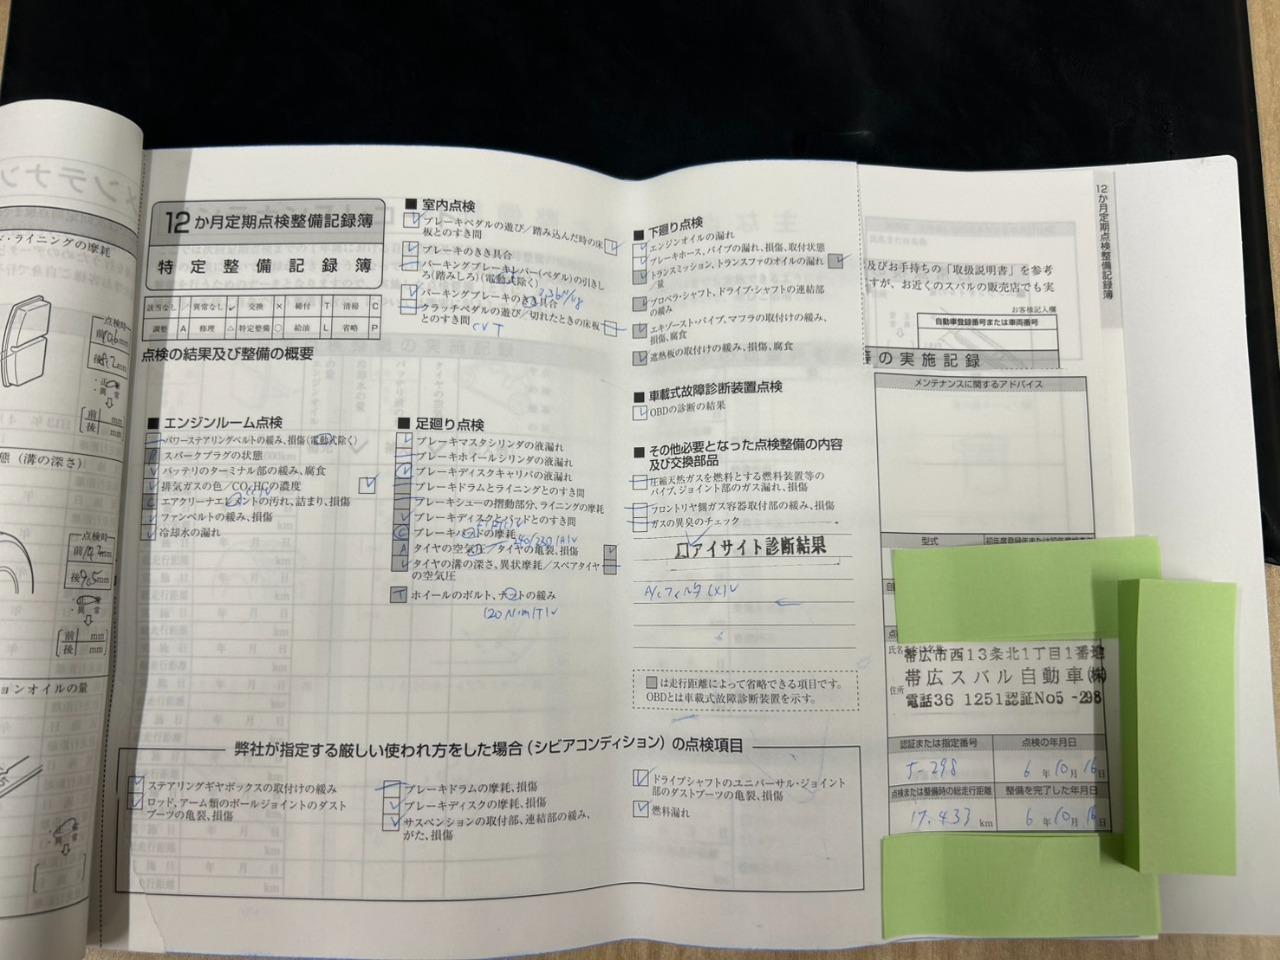 12か月定期点検整備記録簿
特定整備記録簿
該当なし / 異常なし レ 交換 × 締付 T 清掃 C
調整 A 修理 △ 特定整備 ○ 給油 L 省略 P
点検の結果及び整備の概要
■ エンジンルーム点検
パワーステアリングベルトの緩み、損傷(電動式除く)
スパークプラグの状態
バッテリのターミナル部の緩み、腐食
排気ガスの色/CO、HCの濃度
エアクリーナエレメントの汚れ、詰まり、損傷
ファンベルトの緩み、損傷
冷却水の漏れ
■ 室内点検
ブレーキペダルの遊び/踏み込んだ時の床
板とのすき間
ブレーキのきき具合
パーキングブレーキレバー(ペダル)の引きし
ろ(踏みしろ)(電動式除く)
パーキングブレーキのきき具合
クラッチペダルの遊び/切れたときの床板
とのすき間
CVT
■ 足廻り点検
ブレーキマスタシリンダの液漏れ
ブレーキホイールシリンダの液漏れ
ブレーキディスクキャリパの液漏れ
ブレーキドラムとライニングとのすき間
ブレーキシューの摺動部分、ライニングの摩耗
ブレーキディスクとパッドとのすき間
ブレーキパッドの摩耗
タイヤの空気圧/タイヤの亀裂、損傷
タイヤの溝の深さ、異状摩耗/スペアタイヤ
の空気圧
ホイールのボルト、ナットの緩み
120 N・m
■ 下廻り点検
エンジンオイルの漏れ
ブレーキホース、パイプの漏れ、損傷、取付状態
トランスミッション、トランスファのオイルの漏れ
/量
プロペラ・シャフト、ドライブ・シャフトの連結部
の緩み
エキゾースト・パイプ、マフラの取付けの緩み、
損傷、腐食
遮熱板の取付けの緩み、損傷、腐食
■ 車載式故障診断装置点検
OBDの診断の結果
■ その他必要となった点検整備の内容
及び交換部品
圧縮天然ガスを燃料とする燃料装置等の
パイプ、ジョイント部のガス漏れ、損傷
フロントリヤ側ガス容器取付部の緩み、損傷
ガスの異臭のチェック
アイサイト診断結果
A/Cフィルタ (X)レ
■は走行距離によって省略できる項目です。
OBDとは車載式故障診断装置を示す。
弊社が指定する厳しい使われ方をした場合(シビアコンディション)の点検項目
ステアリングギヤボックスの取付けの緩み
ロッド、アーム類のボールジョイントのダスト
ブーツの亀裂、損傷
ブレーキドラムの摩耗、損傷
ブレーキディスクの摩耗、損傷
サスペンションの取付部、連結部の緩み、
がた、損傷
ドライブシャフトのユニバーサル・ジョイント
部のダストブーツの亀裂、損傷
燃料漏れ
12か月定期点検整備記録簿
及びお手持ちの「取扱説明書」を参考
すが、お近くのスバルの販売店でも実
お客様記入欄
自動車登録番号または車両番号
の実施記録
メンテナンスに関するアドバイス
型式
氏名または名称
住所
帯広市西13条北1丁目1番地
帯広スバル自動車(株)
電話36 1251認証No5-298
認証または指定番号 点検の年月日
5-298 6年10月16日
点検または整備時の総走行距離 整備を完了した年月日
17,433 km 6年10月16日
ド・ライニングの摩耗
点検時
前
後
正 異常
前 mm
後 mm
態(溝の深さ)
点検時
前
後
異常
前 mm
後 mm
ョンオイルの量
異常